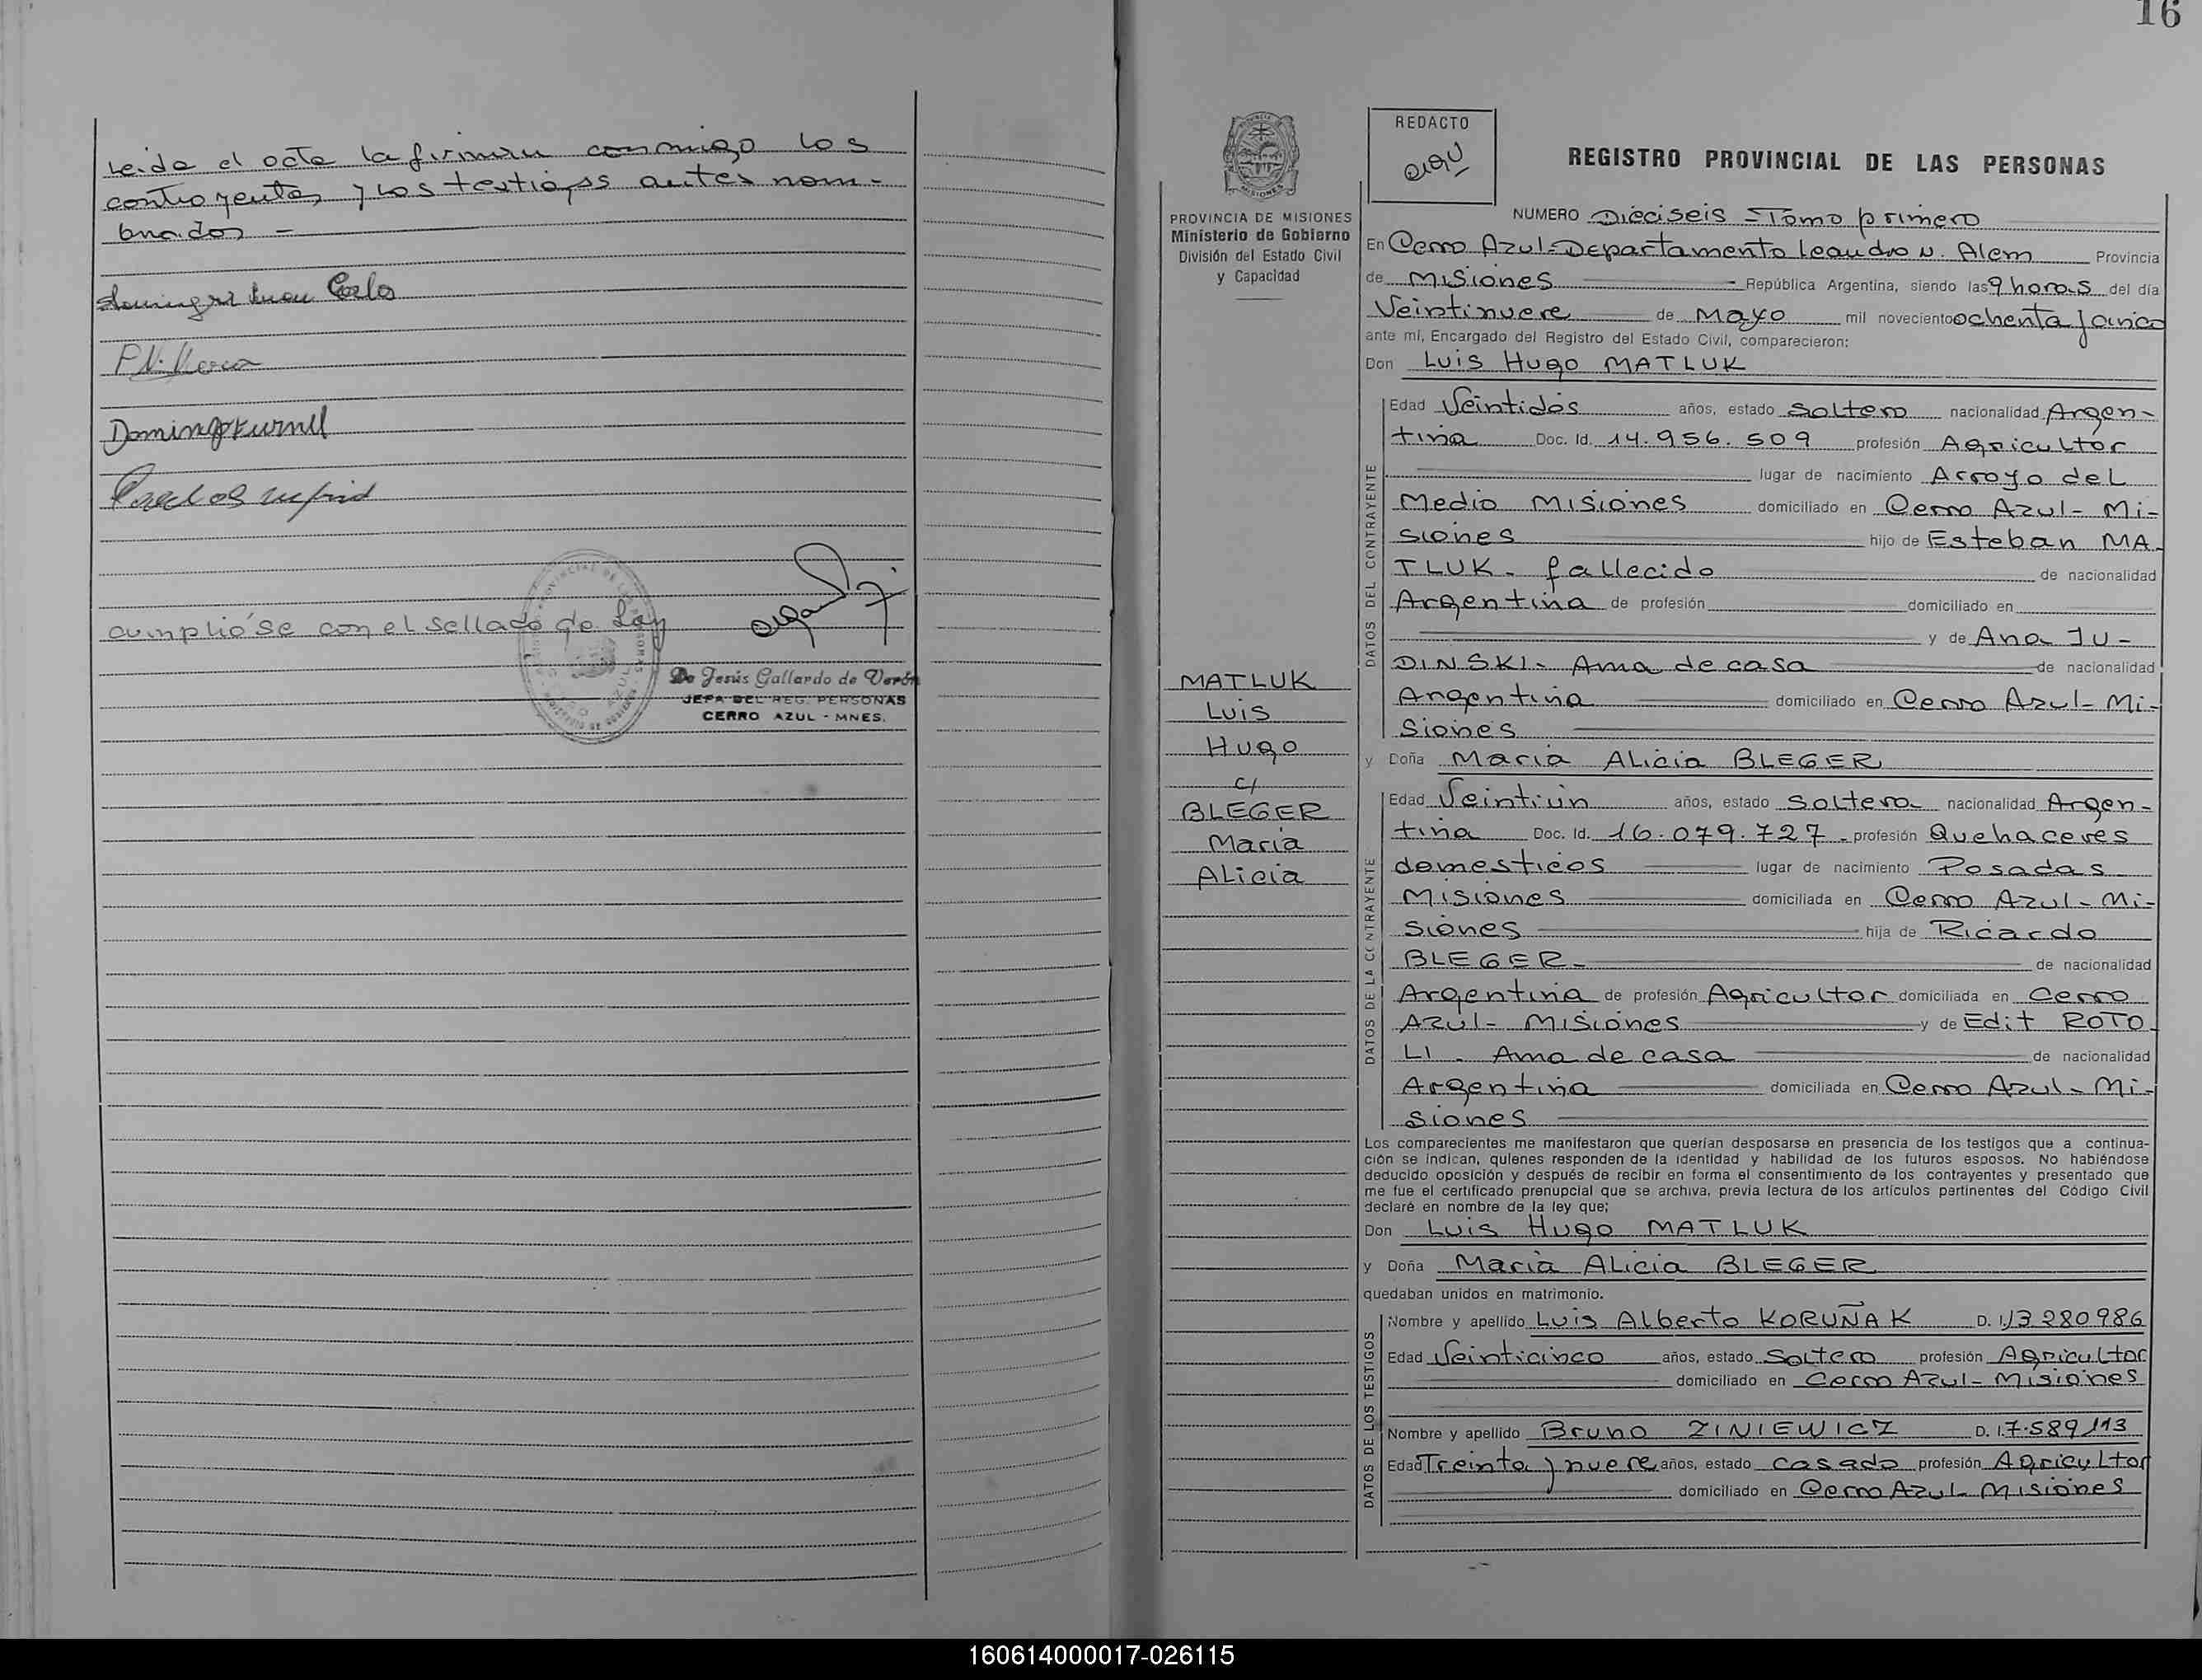 Leida el acta la firman conmigo los
contrayentes y los testigos antes nom-
brados -
Carlo
Domingo
cumplióse con el sellado de Ley
De Jesús Gallardo de Verón
JEFA DEL REG. PERSONAS
CERRO AZUL - MNES.
16
PROVINCIA DE MISIONES
Ministerio de Gobierno
División del Estado Civil
y Capacidad
MATLUK
Luis
Hugo
c/
BLEGER
Maria
Alicia
REDACTO
REGISTRO PROVINCIAL DE LAS PERSONAS
NUMERO Dieciseis - Tomo primero
En Cerro Azul - Departamento Leandro N. Alem Provincia
de Misiones República Argentina, siendo las 9 horas del día
Veintinueve de Mayo mil novecientoochenta y cinco
ante mí, Encargado del Registro del Estado Civil, comparecieron:
Don Luis Hugo MATLUK
DATOS DEL CONTRAYENTE
Edad Veintidós años, estado Soltero nacionalidad Argen-
tina Doc. Id. 14.956.509 profesión Agricultor
lugar de nacimiento Arroyo del
Medio Misiones domiciliado en Cerro Azul - Mi-
siones hijo de Esteban MA-
TLUK - fallecido de nacionalidad
Argentina de profesión domiciliado en
y de Ana JU-
DINSKI - Ama de casa de nacionalidad
Argentina domiciliado en Cerro Azul - Mi-
siones
y Doña Maria Alicia BLEGER
DATOS DE LA CONTRAYENTE
Edad Veintiún años, estado Soltera nacionalidad Argen-
tina Doc. Id. 16.079.727 - profesión Quehaceres
domesticos lugar de nacimiento Posadas
Misiones domiciliada en Cerro Azul - Mi-
siones hija de Ricardo
BLEGER - de nacionalidad
Argentina de profesión Agricultor domiciliada en Cerro
Azul - Misiones y de Edit ROTO-
LI - Ama de casa de nacionalidad
Argentina domiciliada en Cerro Azul - Mi-
siones
Los comparecientes me manifestaron que querían desposarse en presencia de los testigos que a continua-
ción se indican, quienes responden de la identidad y habilidad de los futuros esposos. No habiéndose
deducido oposición y después de recibir en forma el consentimiento de los contrayentes y presentado que
me fue el certificado prenupcial que se archiva, previa lectura de los artículos pertinentes del Código Civil
declaré en nombre de la ley que;
Don Luis Hugo MATLUK
y Doña Maria Alicia BLEGER
quedaban unidos en matrimonio.
DATOS DE LOS TESTIGOS
Nombre y apellido Luis Alberto KORUÑAK D. I. 13 280986
Edad Veinticinco años, estado Soltero profesión Agricultor
domiciliado en Cerro Azul - Misiones
Nombre y apellido Bruno ZINIEWICZ D. I. 7.589.113
Edad Treinta y nueve años, estado casado profesión Agricultor
domiciliado en Cerro Azul - Misiones
160614000017-026115